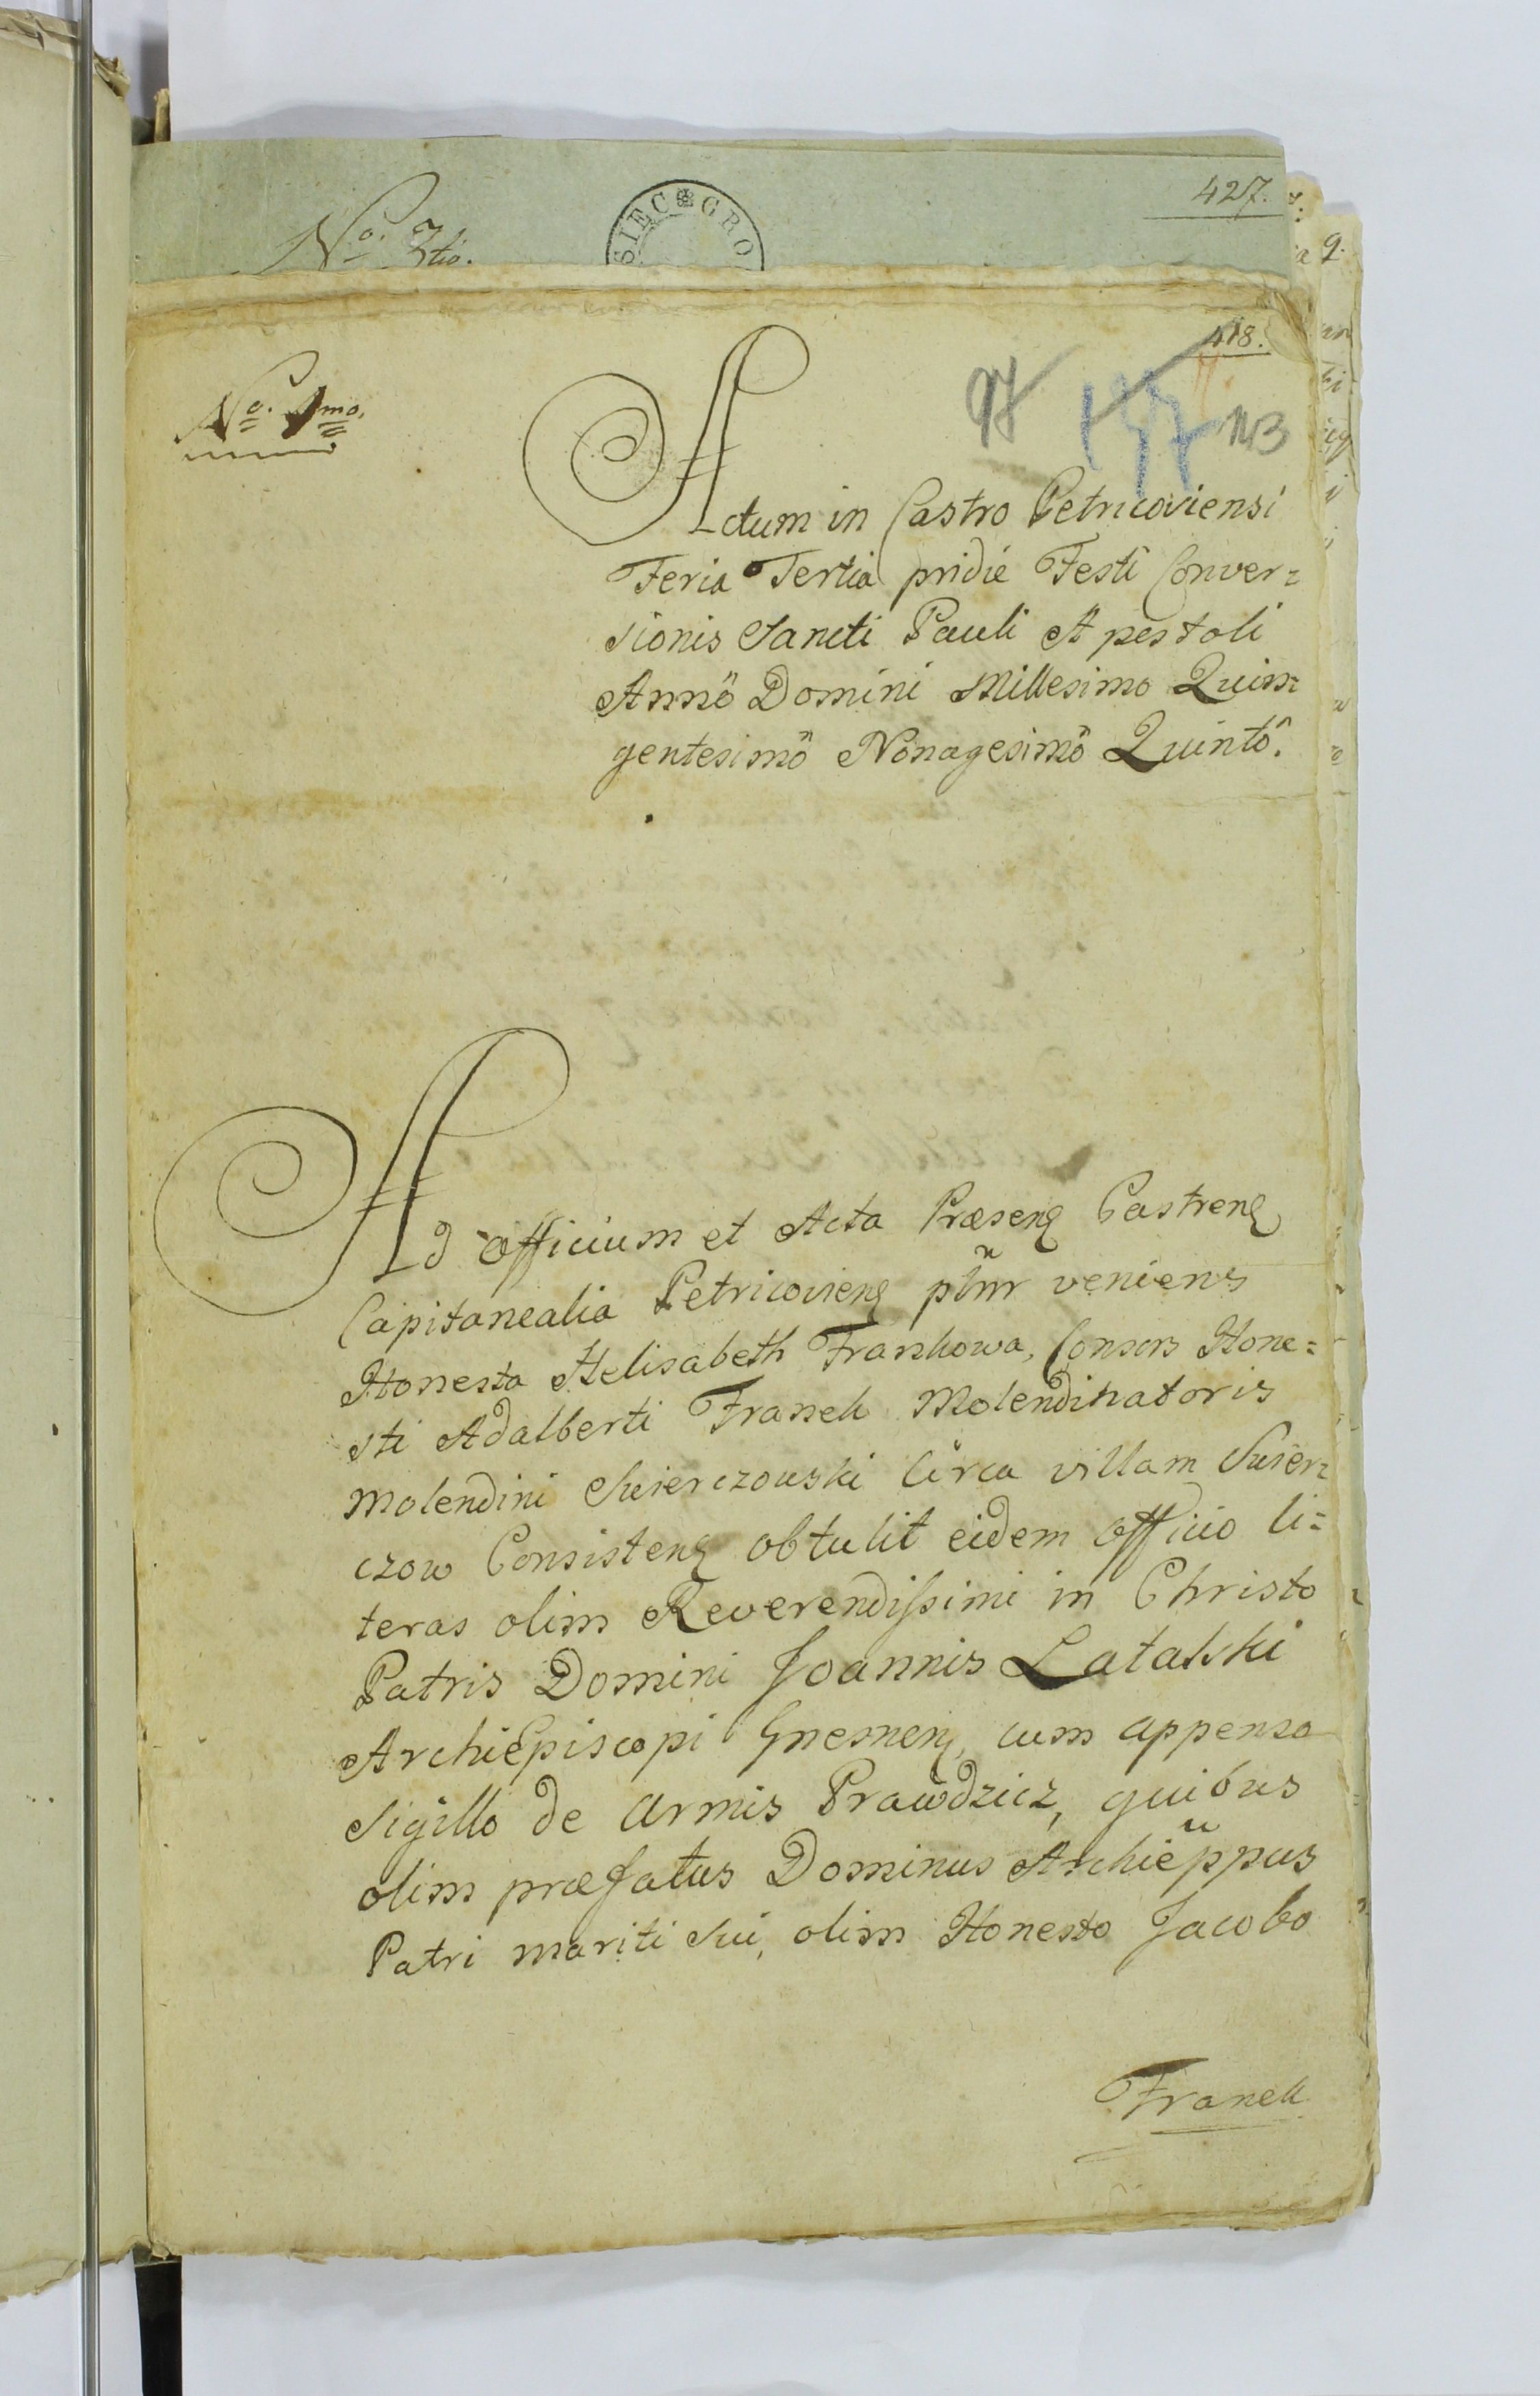 427.
No. 3tio.
SIEC * GRO
418.
No. 1mo.
97
113
Actum in Castro Petricoviensi
Feria Tertia pridie Festi Conver=
sionis Sancti Pauli Apostoli
Annô Domini Millesimo Quin=
gentesimô Nonagesimô Quintô.
Ad Officium et Acta Præsenֿ Castrenֿ
Capitanealia Petricovienֿ plñr veniens
Honesta Helisabeth Frankowa, Consors Hone=
sti Adalberti Franek Molendinatoris
Molendini Swierczowski Circa villam Swier=
czow Consistenֿ obtulit eidem officio li=
teras olim Reverendissimi in Christo
Patris Domini Joannis Latalski
ArchiEpiscopi Gnesnenֿ, cum appenso
Sigillo de Armis Prawdzicz, quibus
olim præfatus Dominus Archieppus
Patri mariti sui, olim Honesto Jacobo
Franek